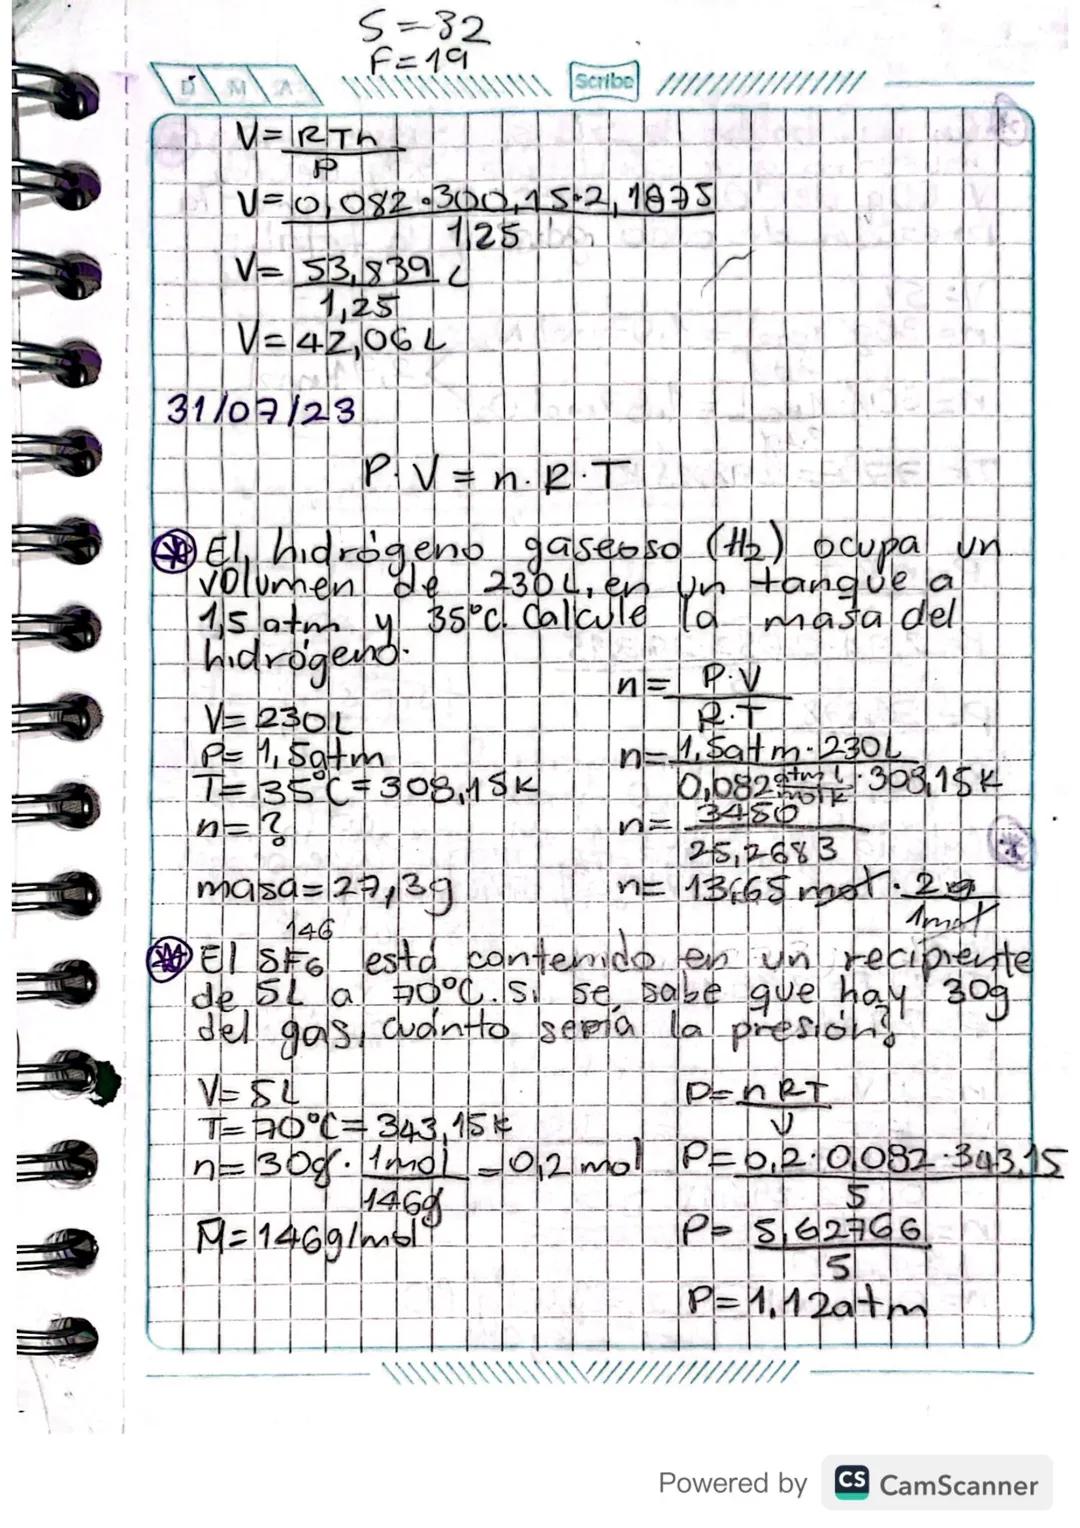 S=32
F=19
D M A
Scribe
V=RTn
P
V=0,082·300,15·2,1875
1,25
V= 53,839 L
1,25
V=42,06 L
31/07/23
P.V=n.R.T
El hidrógeno gaseoso (H2) ocupa un
volumen de 230L, en un tanque a
1,5 atm y 35°C. Calcule la masa del
hidrógeno.
n= P.V
R.T
V= 230L
P= 1,5atm
T= 35°C=308,15K
n=?
masa=27,3g
n= 1,5atm·230L
0,082 atm L · 308,15K
mol K
n= 3450
25,2683
n= 13,65 mol · 2g
1mol
146
El SF6 está contenido en un recipiente
de 5L a 70°C. Si se sabe que hay 30g
del gas, cuánto sería la presión?
V=5L
T=70°C=343,15K
n=30g· 1mol =0,2 mol
146g
M=146g/mol
P=nRT
V
P=0,2·0,082·343,15
5
P= 5,62766
5
P=1,12atm
Powered by CS CamScanner